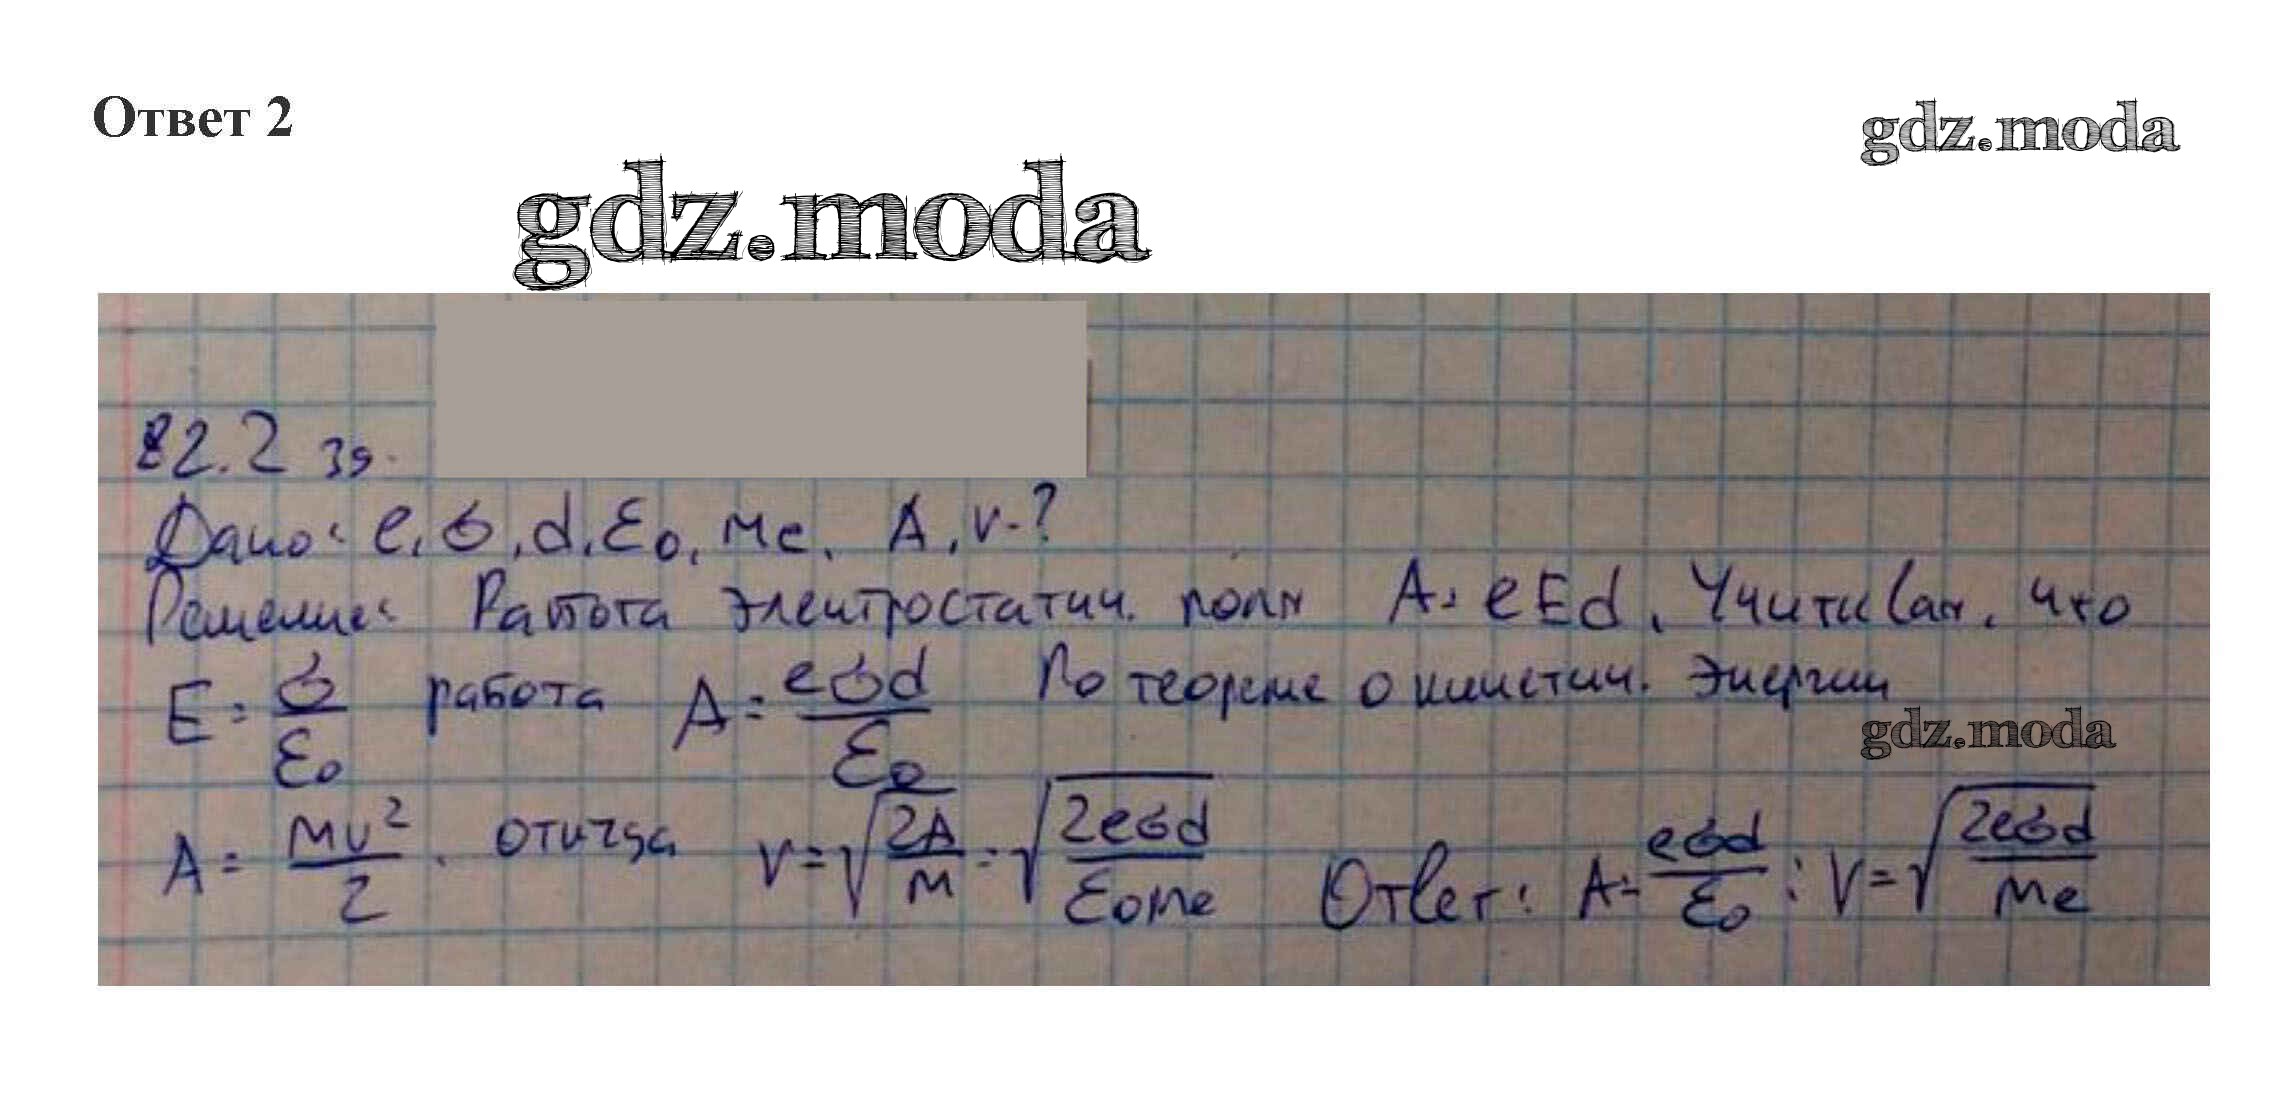 Ответ 2
gdz.moda
gdz.moda
82.2 зд.
Дано: e, σ, d, ε₀, me. A, v-?
Решение: Работа электростатич. поля A = eEd. Учитывая, что
E = σ/ε₀ работа A = eσd/ε₀ По теореме о кинетич. энергии
gdz.moda
A = mv²/2. откуда v = √(2A/m) = √(2eσd/ε₀me) Ответ: A = eσd/ε₀; V = √(2eσd/me)